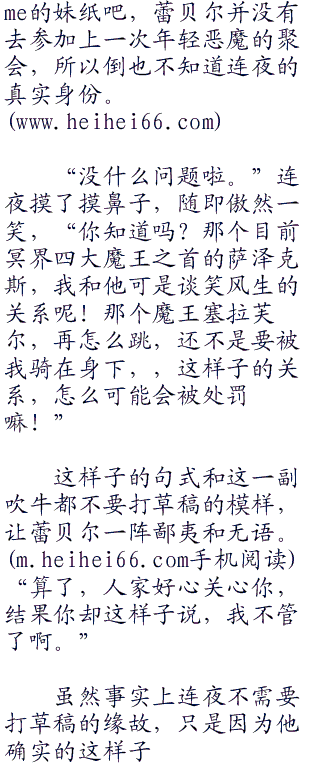 me的妹纸吧，蕾贝尔并没有
去参加上一次年轻恶魔的聚
会，所以倒也不知道连夜的
真实身份。
(www.heihei66.com)
“没什么问题啦。”连
夜摸了摸鼻子，随即傲然一
笑，“你知道吗？那个目前
冥界四大魔王之首的萨泽克
斯，我和他可是谈笑风生的
关系呢！那个魔王塞拉芙
尔，再怎么跳，还不是要被
我骑在身下，，这样子的关
系，怎么可能会被处罚
嘛！”
这样子的句式和这一副
吹牛都不要打草稿的模样，
让蕾贝尔一阵鄙夷和无语。
(m.heihei66.com手机阅读)
“算了，人家好心关心你，
结果你却这样子说，我不管
了啊。”
虽然事实上连夜不需要
打草稿的缘故，只是因为他
确实的这样子